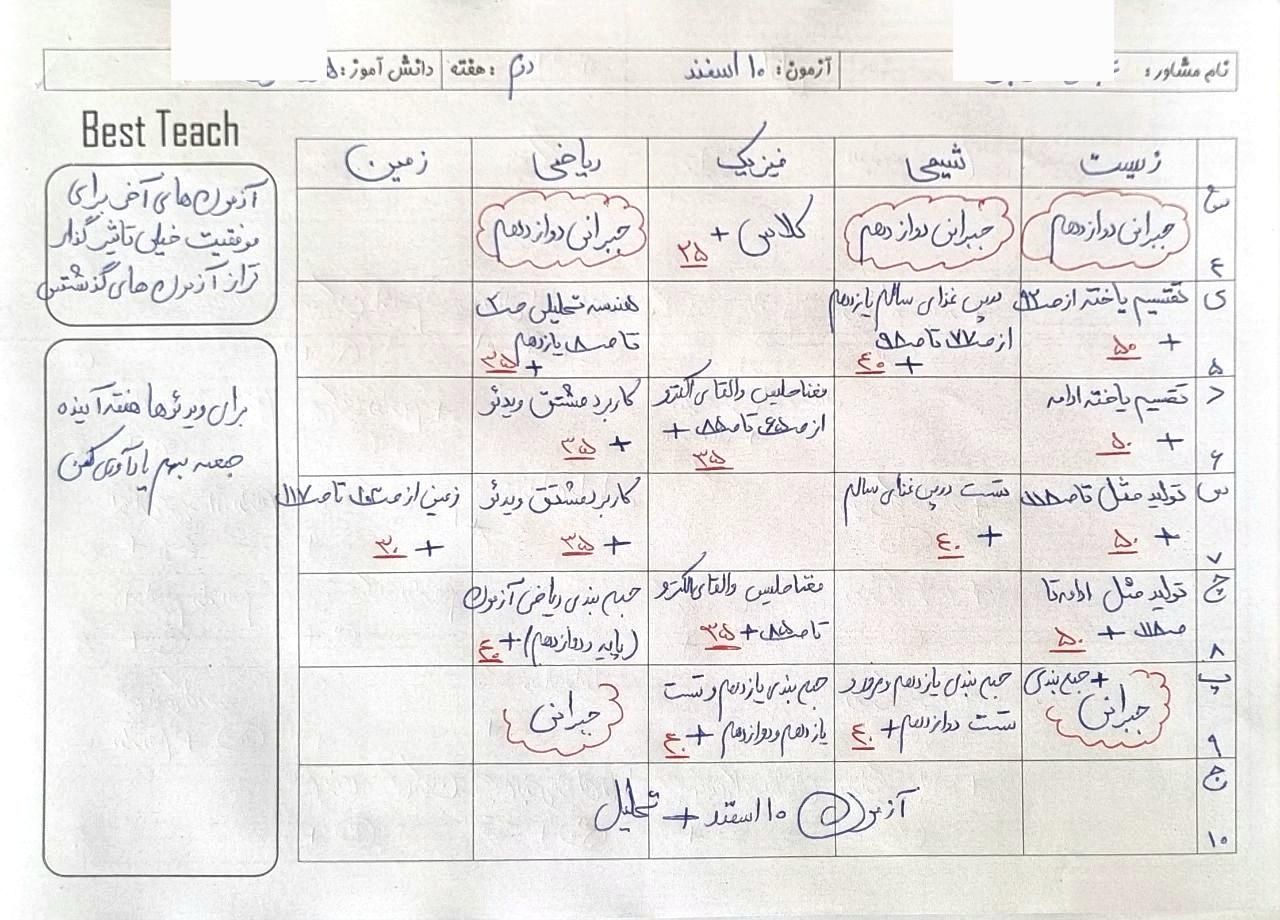 نام مشاور:
آزمون: ۱۰ اسفند
هفته: دوم
دانش آموز:
Best Teach
آزمون های آخر برای
موفقیت خیلی تاثیر گذار
تراز آزمون های گذشتتن
برای ویدئوها هفته آینده
جمعه بهم یادآوری کن
زیست
شیمی
فیزیک
ریاضی
زمین
ش ۴
جبرانی دوازدهم
جبرانی دوازدهم
کلاس + ۲۵
جبرانی دوازدهم
ی ۵
تقسیم یاخته از صـ ۹۲
+ ۵۰
درس غذای سالم یازدهم
از صـ ۷۷ تا صـ ۹۸
+ ۴۰
هندسه تحلیلی صـ
تا صـ ۸ یازدهم
+ ۳۵
د ۶
تقسیم یاخته ادامه
+ ۵۰
مغناطیس والقای الکترو
از صـ ۶۵ تا صـ ۸۵ +
۳۵
کاربرد مشتق ویدئو
+ ۳۵
س ۷
تولید مثل تا صـ ۱۱۸
+ ۵۰
تست درس غذای سالم
+ ۴۰
کاربرد مشتق ویدئو
+ ۳۵
زمین از صـ ۱۰۲ تا صـ ۱۱۷
+ ۳۰
چ ۸
تولید مثل ادامه تا
صـ ۱۱۸ + ۵۰
مغناطیس والقای الکترو
تا صـ ۸۵ + ۳۵
جمع بندی ریاضی آزمون
(پایه و دوازدهم) + ۴۰
پ ۹
+ جمع بندی
جبرانی
جمع بندی یازدهم و مرور
تست دوازدهم + ۴۰
جمع بندی یازدهم و تست
یازدهم و دوازدهم + ۴۰
جبرانی
ج ۱۰
آزمون ۱۰ اسفند + تحلیل